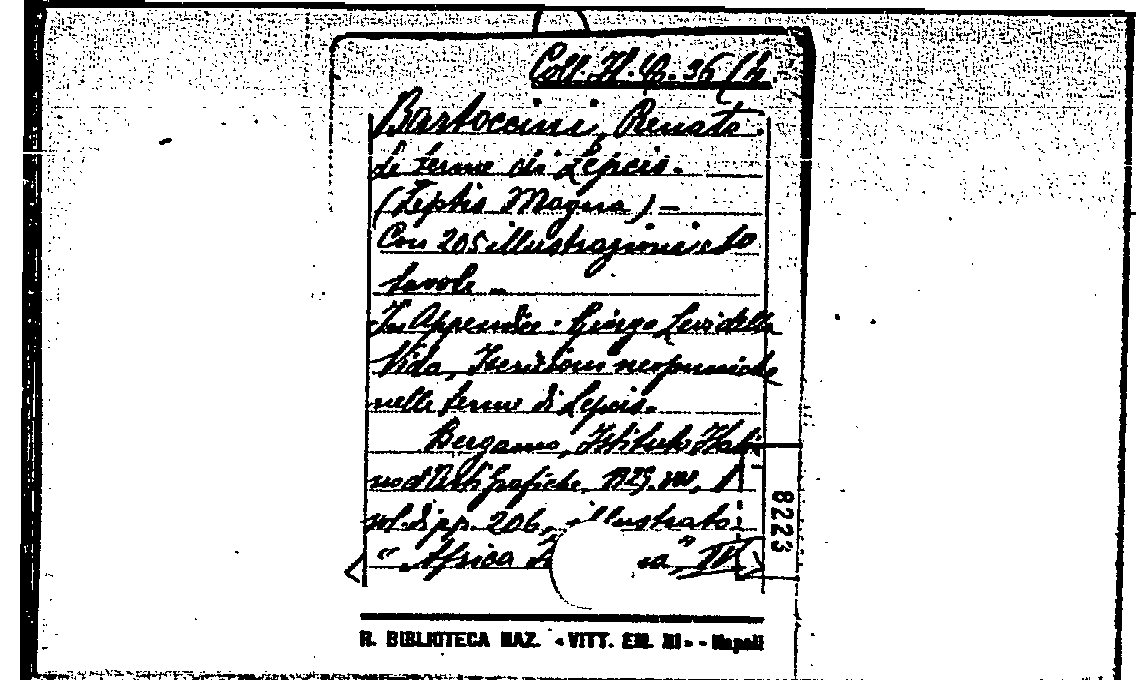 Coll. It. Q. 36 (4.
Bartoccini, Renato.
Le terme di Lepcis.
(Leptis Magna) –
Con 205 illustrazioni e to
tavole –
In Appendice - Giorgio Levi della
Vida, Iscrizioni neopuniche
nelle terme di Lepcis.
Bergamo, Istituto Itali
no d'Arti Grafiche, 1929. VII, 1
vol. di pp. 206, illustrato.
" Africa It na", IV
8223
R. BIBLIOTECA NAZ. «VITT. EM. III» - Napoli